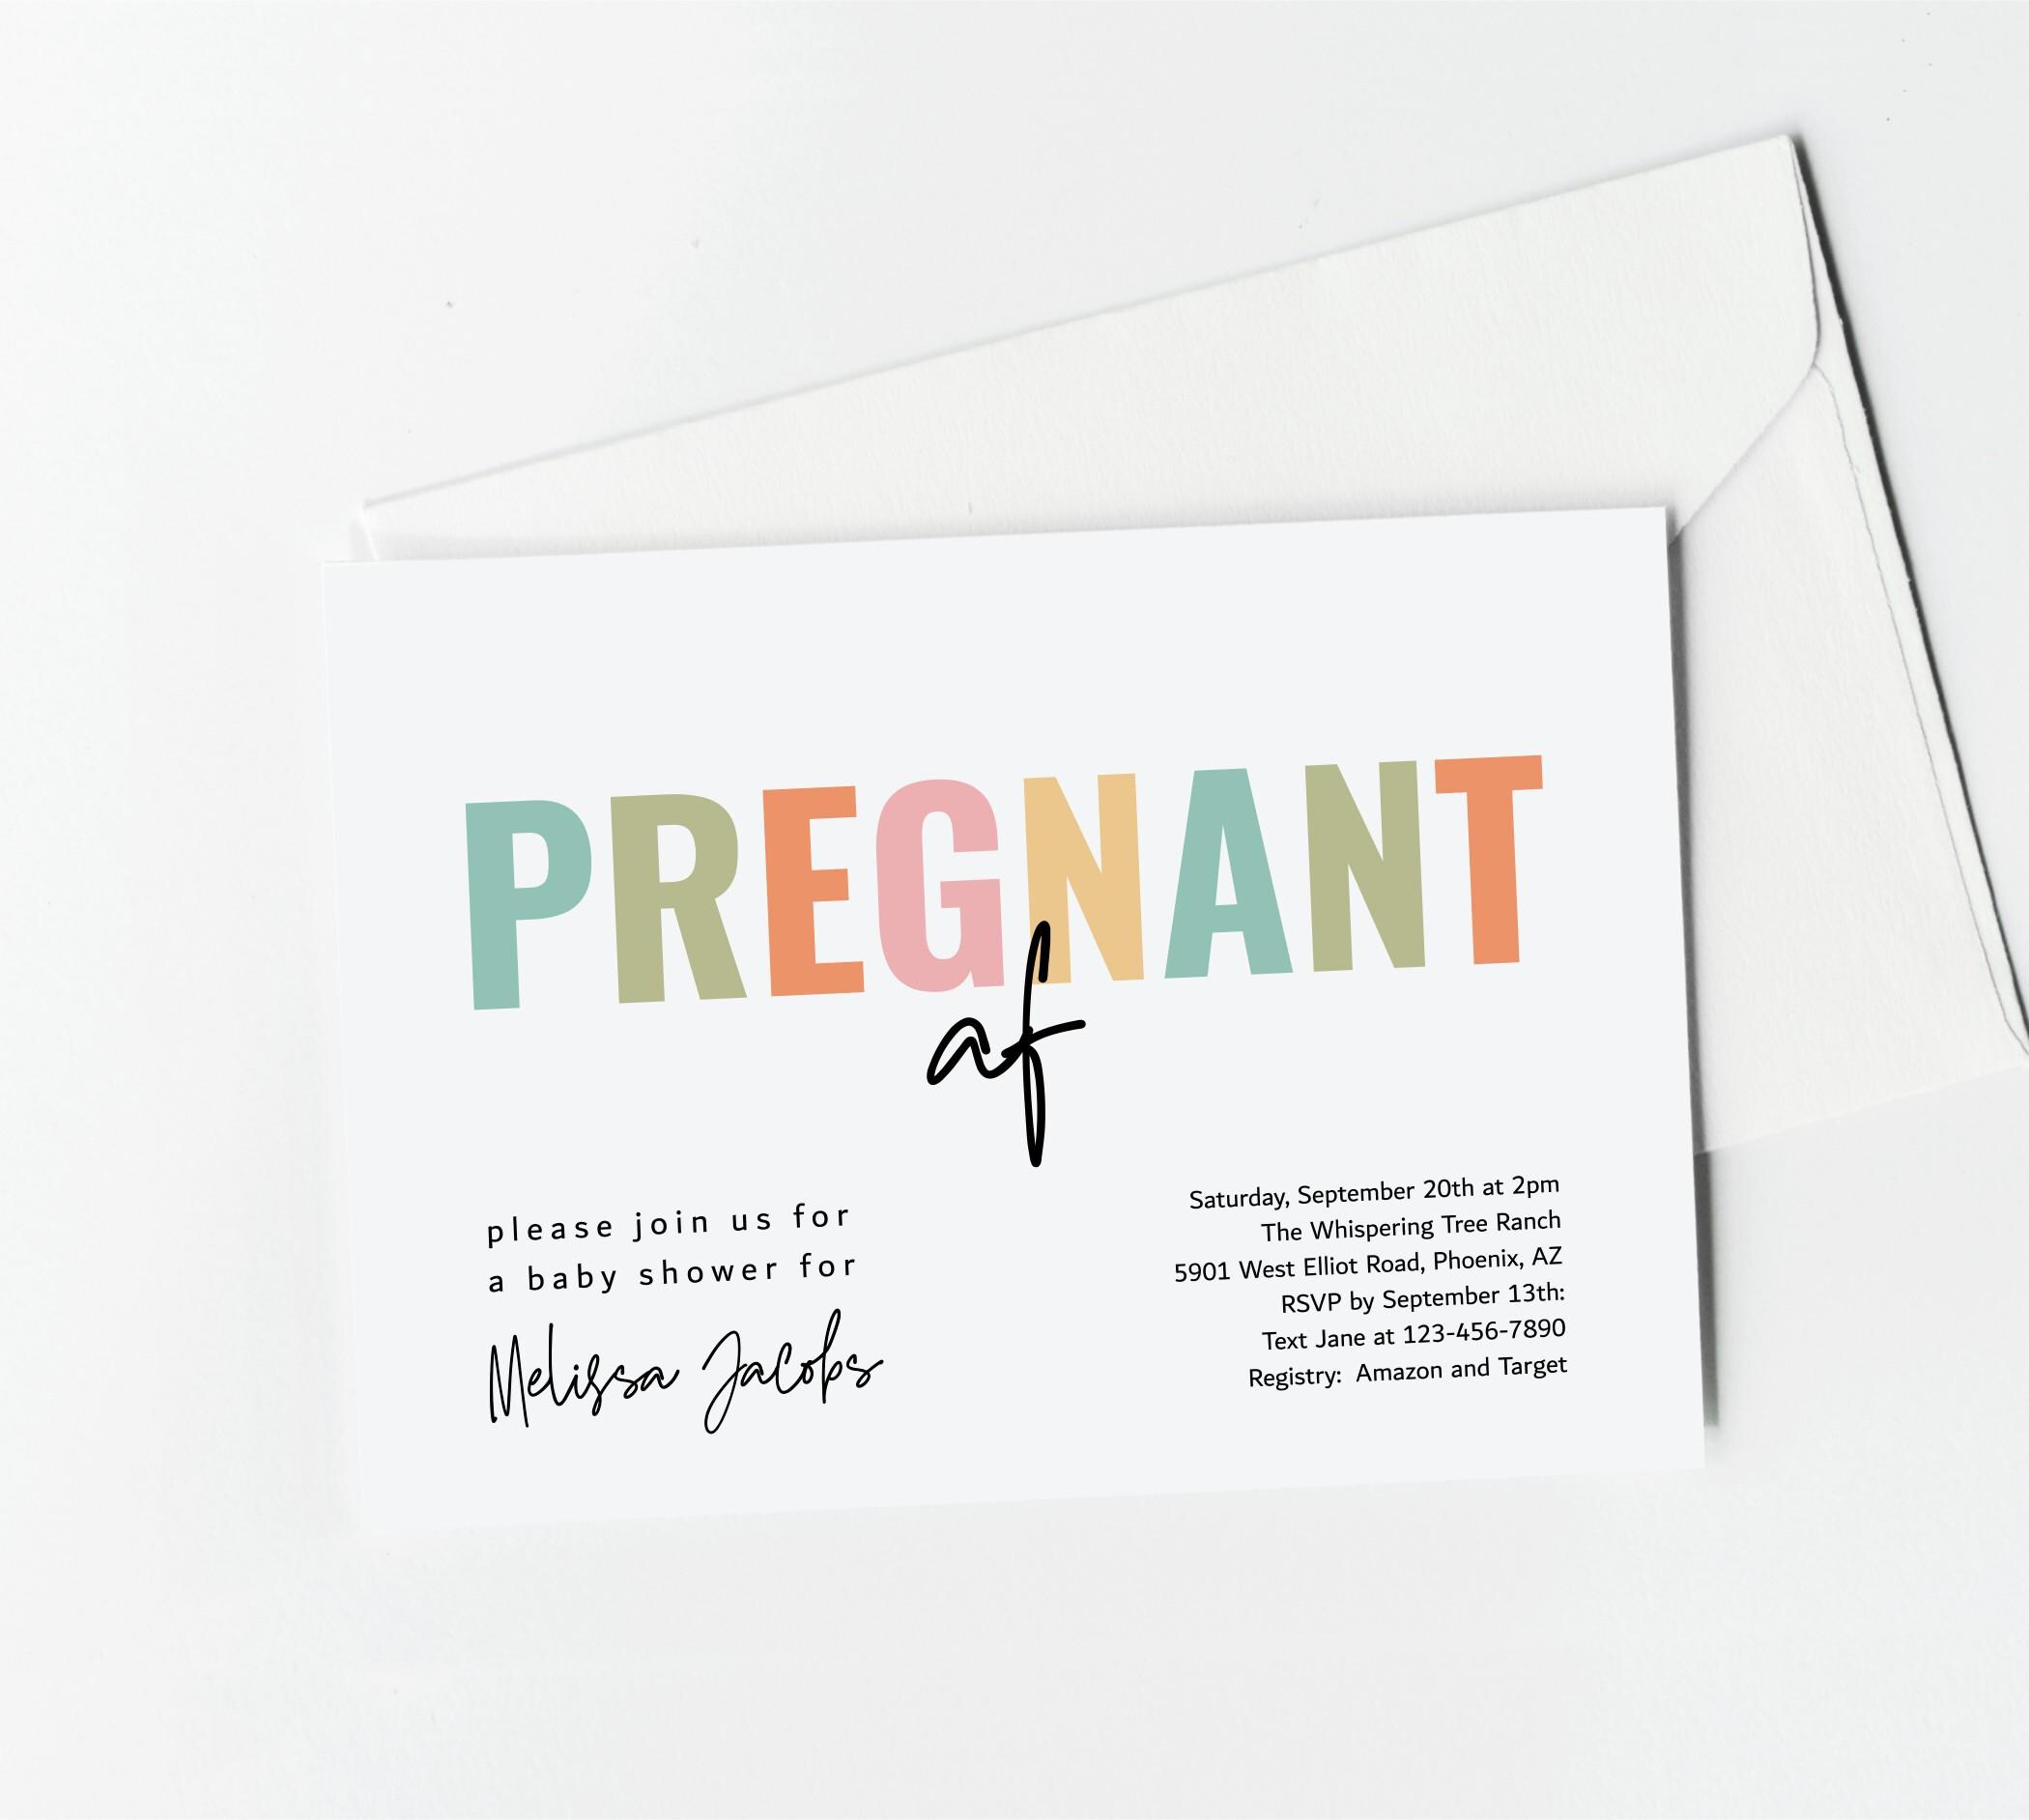 PREGNANT
af
please join us for
a baby shower for
Melissa Jacobs
Saturday, September 20th at 2pm
The Whispering Tree Ranch
5901 West Elliot Road, Phoenix, AZ
RSVP by September 13th:
Text Jane at 123-456-7890
Registry: Amazon and Target